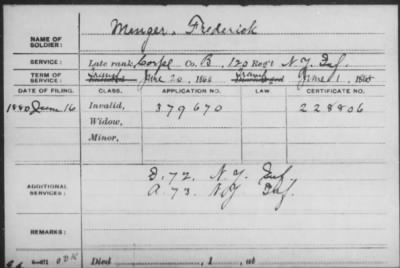 NAME OF SOLDIER: Menger, Frederick
SERVICE: Late rank, Corpl Co. B, 120 Reg't N.Y. Inf.
TERM OF SERVICE: Transf June 20, 186 Transf June 1, 1865
DATE OF FILING. CLASS. APPLICATION NO. LAW. CERTIFICATE NO.
1880 June 16 Invalid, 379670 228806
Widow,
Minor,
D. 72. N.Y. Inf.
ADDITIONAL SERVICES: A. 73. N.Y. Inf.
REMARKS:
Died , 1 , at